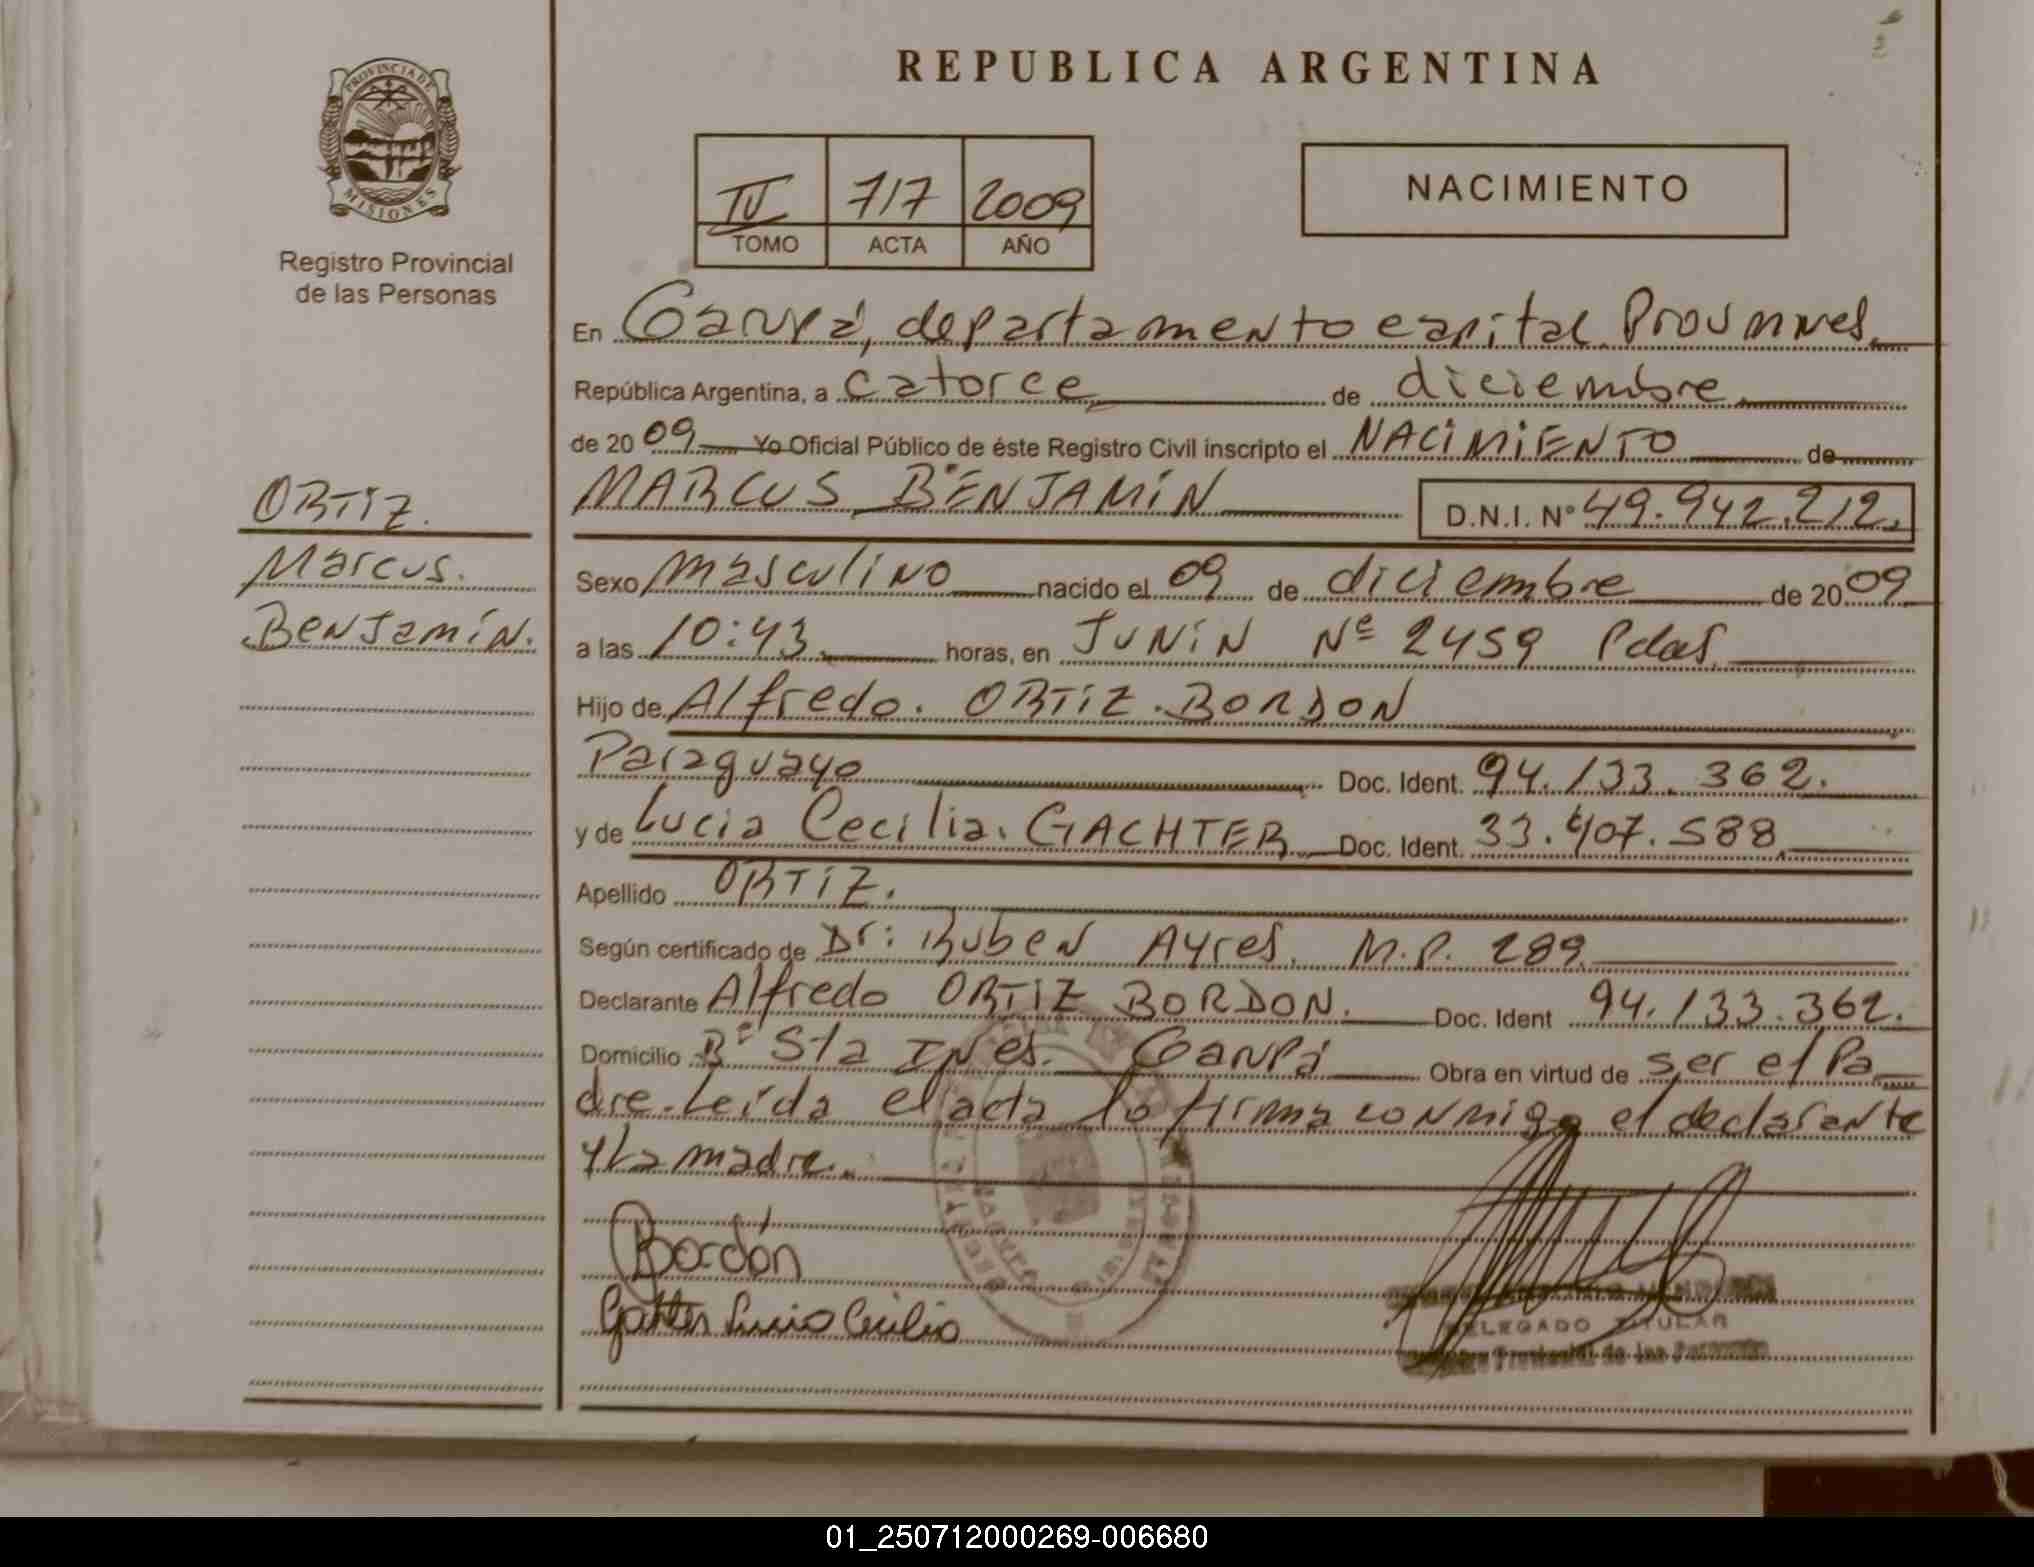 REPUBLICA ARGENTINA
PROVINCIA DE
MISIONES
Registro Provincial
de las Personas
IV 717 2009
TOMO ACTA AÑO
NACIMIENTO
En Garupá, departamento capital Prov Mnes.
República Argentina, a catorce de diciembre
de 20 09 Yo Oficial Público de éste Registro Civil inscripto el NACIMIENTO de
MARCUS BENJAMIN D.N.I. Nº 49.942.212.
ORTIZ.
Marcus.
Benjamín.
Sexo masculino nacido el 09 de diciembre de 20 09
a las 10:43 horas, en JUNIN Nº 2459 Pdas.
Hijo de Alfredo. ORTIZ. BORDON
Paraguayo Doc. Ident. 94.133.362.
y de Lucia Cecilia. GACHTER Doc. Ident. 33.407.588
Apellido ORTIZ.
Según certificado de Dr: Ruben Ayres. M.P. 289
Declarante Alfredo ORTIZ BORDON. Doc. Ident 94.133.362.
Domicilio Bº Sta Ines. Garupá Obra en virtud de ser el Pa
dre. Leída el acta lo firma conmigo el declarante
y La madre.
Bordón
Lucia Cecilia
DELEGADO TITULAR
Provincial de las Personas
01_250712000269-006680